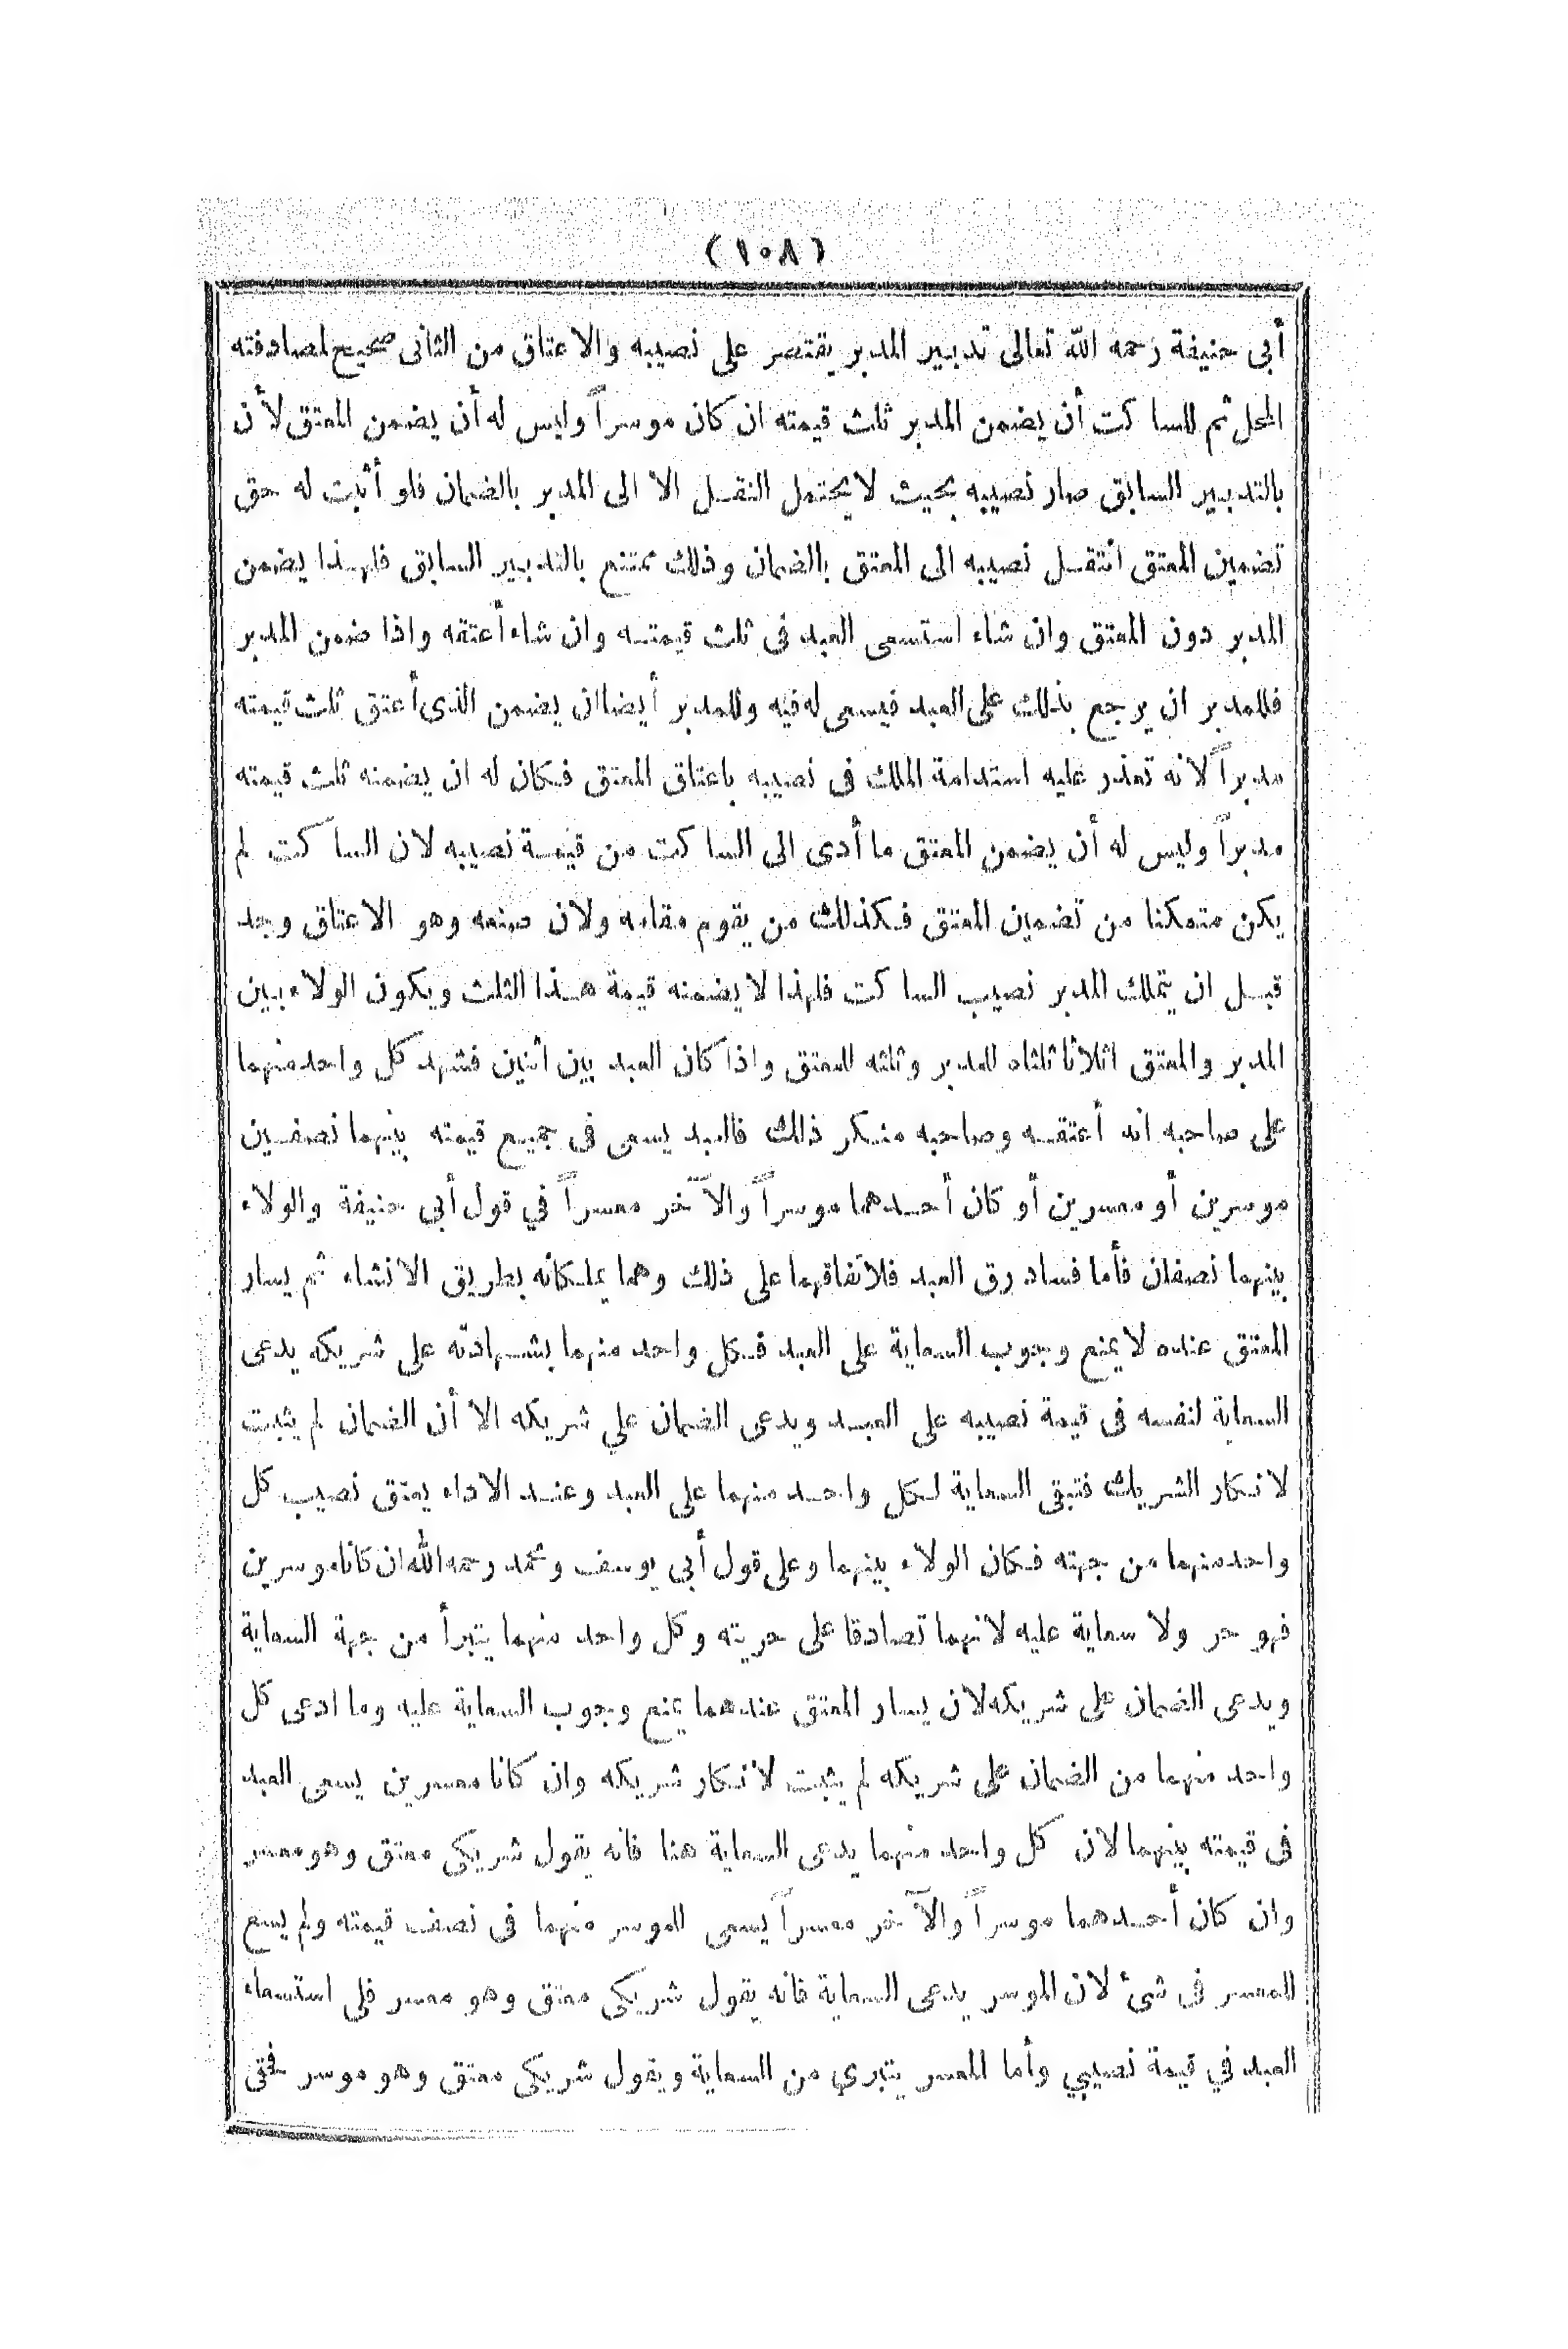 (١٠٨)
أبى حنيفة رحمه الله تعالى تدبير المدبر يقتصر على نصيبه والاعتاق من الثانى صحيح لمصادفته
المحل ثم للساكت أن يضمن المدبر ثلث قيمته ان كان موسراً وليس له أن يضمن المعتق لأن
بالتدبير السابق صار نصيبه بحيث لا يحتمل النقل الا الى المدبر بالضمان فلو أثبت له حق
تضمين المعتق انتقل نصيبه الى المعتق بالضمان وذلك ممتنع بالتدبير السابق فلهذا يضمن
المدبر دون المعتق وان شاء استسعى العبد فى ثلث قيمته وان شاء أعتقه واذا ضمن المدبر
فللمدبر ان يرجع بذلك على العبد فيسعى له فيه وللمدبر أيضا ان يضمن الذى أعتق ثلث قيمته
مدبراً لانه تعذر عليه استدامة الملك فى نصيبه باعتاق المعتق فكان له ان يضمنه ثلث قيمته
مدبراً وليس له أن يضمن المعتق ما أدى الى الساكت من قيمة نصيبه لان الساكت لم
يكن متمكنا من تضمين المعتق فكذلك من يقوم مقامه ولان صنعه وهو الاعتاق وجد
قبل ان يتملك المدبر نصيب الساكت فلهذا لا يضمنه قيمة هذا الثلث ويكون الولاء بين
المدبر والمعتق اثلاثا ثلثاه للمدبر وثلثه للمعتق واذا كان العبد بين اثنين فشهد كل واحد منهما
على صاحبه انه أعتقه وصاحبه منكر ذلك فالعبد يسعى فى جميع قيمته بينهما نصفين
موسرين أو معسرين أو كان أحدهما موسراً والآخر معسراً في قول أبى حنيفة والولاء
بينهما نصفان فأما فساد رق العبد فلاتفاقهما على ذلك وهما يملكانه بطريق الانشاء ثم يسار
المعتق عنده لا يمنع وجوب السعاية على العبد فكل واحد منهما بشهادته على شريكه يدعى
السعاية لنفسه فى قيمة نصيبه على العبد ويدعى الضمان علي شريكه الا أن الضمان لم يثبت
لانكار الشريك فتبقى السعاية لكل واحد منهما على العبد وعند الاداء يعتق نصيب كل
واحد منهما من جهته فكان الولاء بينهما وعلى قول أبي يوسف ومحمد رحمه الله ان كانا موسرين
فهو حر ولا سعاية عليه لانهما تصادقا على حريته وكل واحد منهما يتبرأ من جهة السعاية
ويدعى الضمان على شريكه لان يسار المعتق عندهما يمنع وجوب السعاية عليه وما ادعى كل
واحد منهما من الضمان على شريكه لم يثبت لانكار شريكه وان كانا معسرين يسعى العبد
فى قيمته بينهما لان كل واحد منهما يدعى السعاية هنا فانه يقول شريكى معتق وهو معسر
وان كان أحدهما موسراً والآخر معسراً يسعى للموسر منهما فى نصف قيمته ولم يسع
للمعسر فى شئ لان الموسر يدعى السعاية فانه يقول شريكى معتق وهو معسر فلى استسعاء
العبد في قيمة نصيبي وأما المعسر يتبري من السعاية ويقول شريكى معتق وهو موسر فحقى